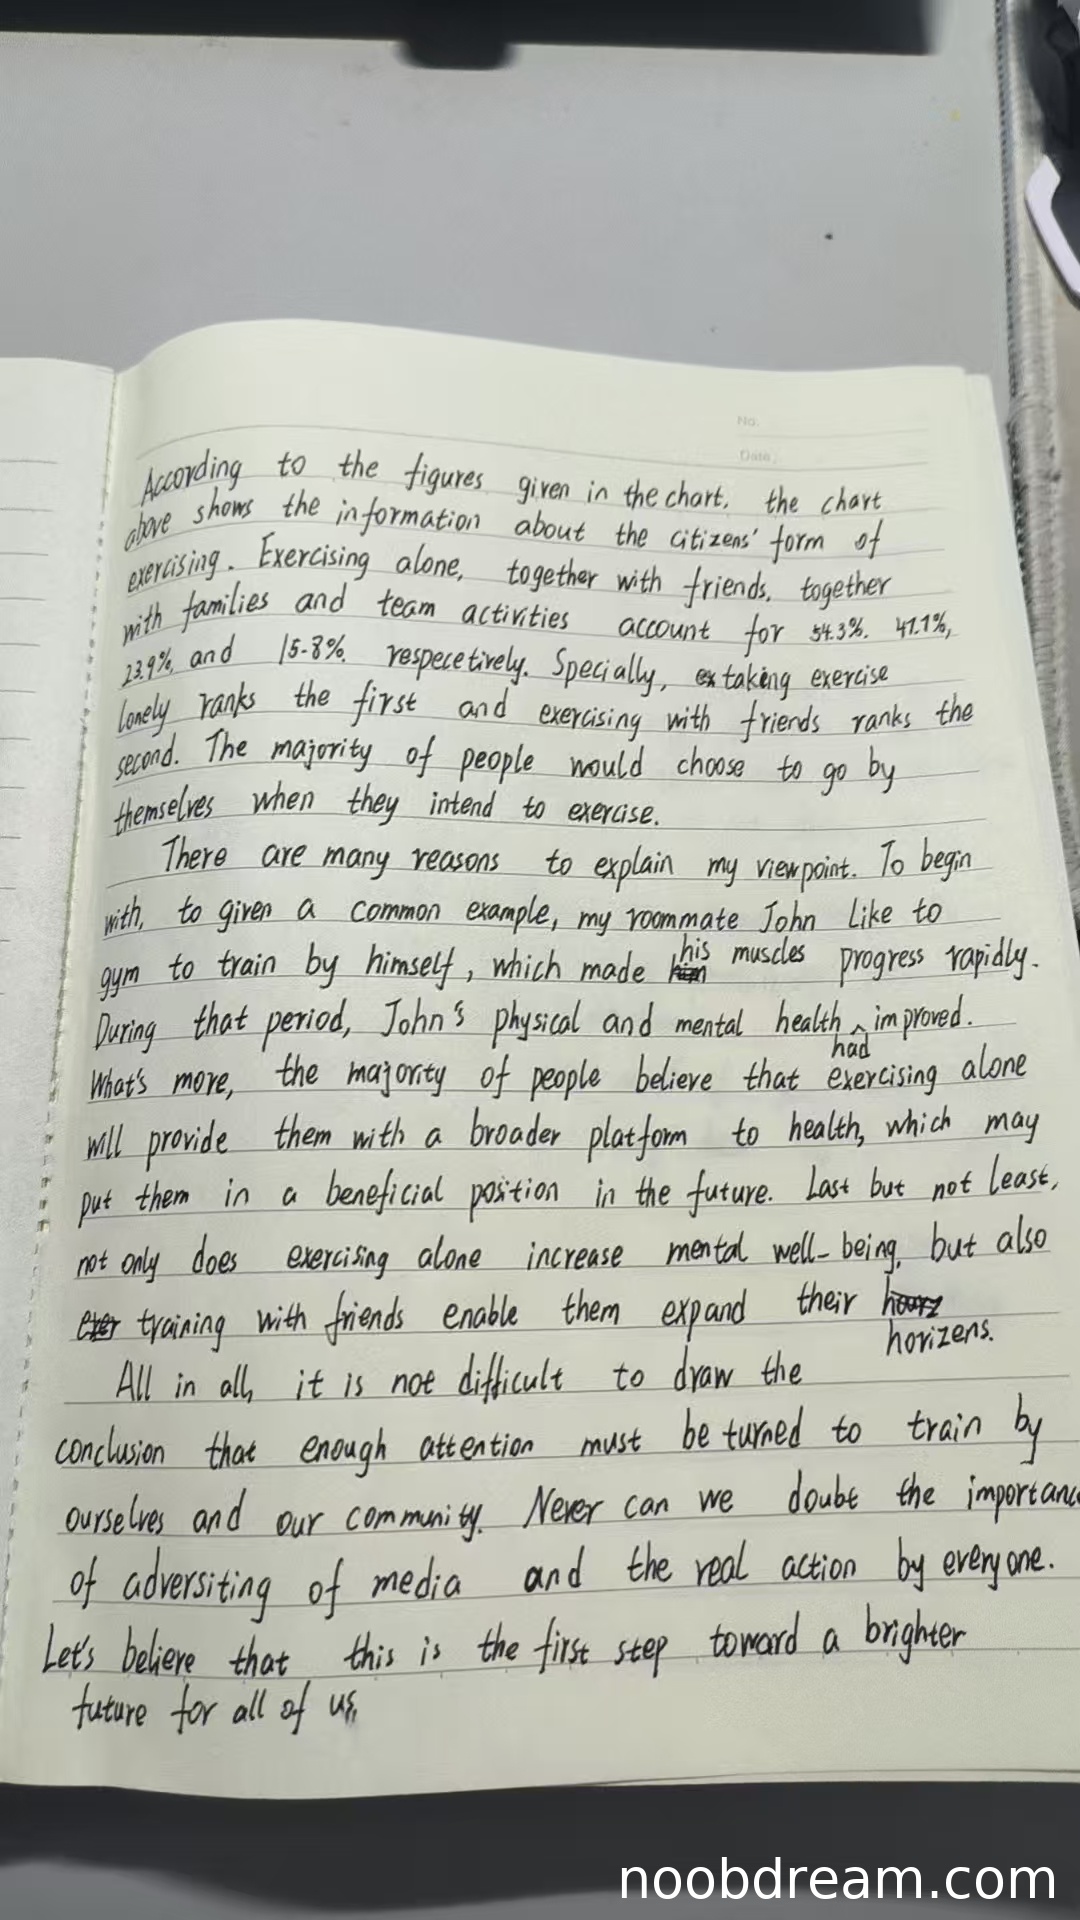 No.
Date
According to the figures given in the chart, the chart
above shows the information about the citizens' form of
exercising. Exercising alone, together with friends, together
with families and team activities account for 54.3%. 47.1%,
23.9%, and 15.8%. respecetively. Specially, taking exercise
lonely ranks the first and exercising with friends ranks the
second. The majority of people would choose to go by
themselves when they intend to exercise.
There are many reasons to explain my viewpoint. To begin
with, to given a common example, my roommate John like to
gym to train by himself, which made his muscles progress rapidly.
During that period, John's physical and mental health had improved.
What's more, the majority of people believe that exercising alone
will provide them with a broader platform to health, which may
put them in a beneficial position in the future. Last but not least,
not only does exercising alone increase mental well-being, but also
training with friends enable them expand their
horizens.
All in all, it is not difficult to draw the
conclusion that enough attention must be turned to train by
ourselves and our community. Never can we doubt the importanc
of adversiting of media and the real action by everyone.
Let's believe that this is the first step toward a brighter
future for all of us.
noobdream.com